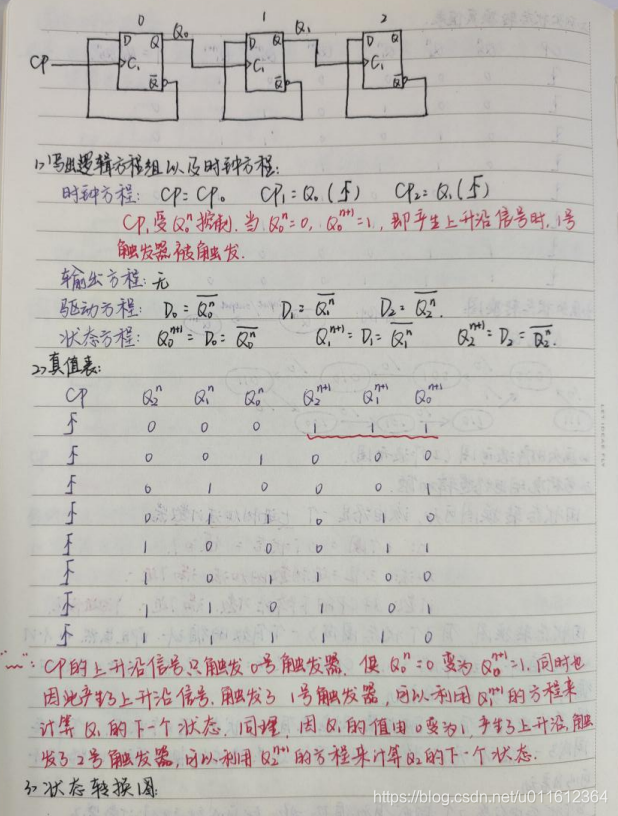 0 1 2
D Q Q₀ D Q Q₁ D Q
CP C₁ C₁ C₁
Q̅ Q̅ Q̅
1>写出逻辑方程组以及时钟方程:
时钟方程: CP=CP₀ CP₁=Q₀(↑) CP₂=Q₁(↑)
CP₁受Q₀ⁿ控制.当Q₀ⁿ=0, Q₀ⁿ⁺¹=1, 即产生上升沿信号时, 1号
触发器被触发.
输出方程: 无
驱动方程: D₀=\overline{Q₀ⁿ} D₁=\overline{Q₁ⁿ} D₂=\overline{Q₂ⁿ}.
状态方程: Q₀ⁿ⁺¹=D₀=\overline{Q₀ⁿ} Q₁ⁿ⁺¹=D₁=\overline{Q₁ⁿ} Q₂ⁿ⁺¹=D₂=\overline{Q₂ⁿ}.
2>真值表:
CP Q₂ⁿ Q₁ⁿ Q₀ⁿ Q₂ⁿ⁺¹ Q₁ⁿ⁺¹ Q₀ⁿ⁺¹
↑ 0 0 0 1 1 1
↑ 0 0 1 0 0 0
↑ 0 1 0 0 0 1
↑ 0 1 1 0 1 0
↑ 1 0 0 0 1 1
↑ 1 0 1 1 0 0
↑ 1 1 0 1 0 1
↑ 1 1 1 1 1 0
"﹏": CP的上升沿信号只触发0号触发器, 使Q₀ⁿ=0变为Q₀ⁿ⁺¹=1. 同时也
因此产生了上升沿信号.触发了1号触发器,可以利用Q₁ⁿ⁺¹的方程来
计算Q₁的下一个状态.同理,因Q₁的值由0变为1,产生了上升沿,触
发了2号触发器,可以利用Q₂ⁿ⁺¹的方程来计算Q₂的下一个状态.
3>状态转换图:
https://blog.csdn.net/u011612364